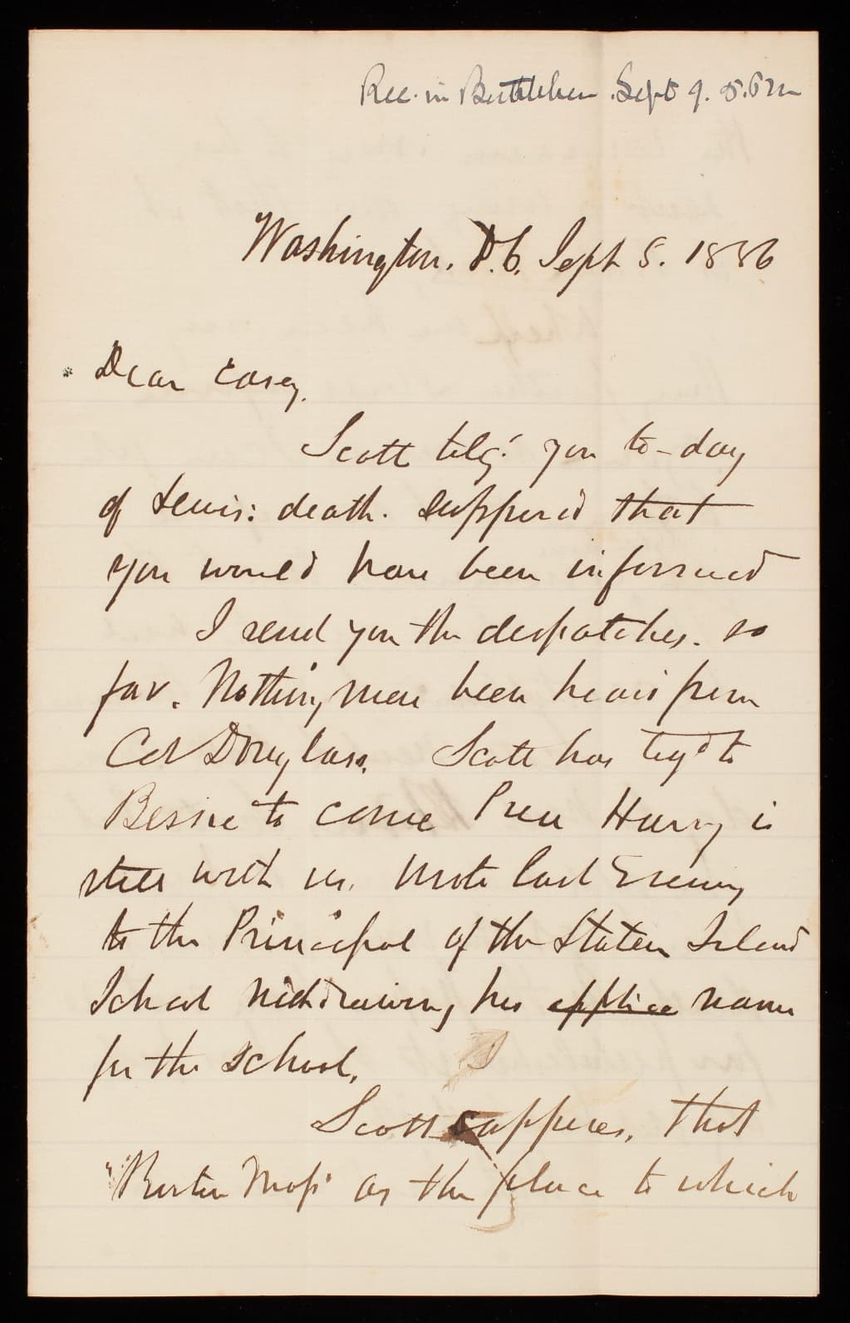 Rec. in Bethlehem Sept 9. 5. P.m
Washington. D.C. Sept 8. 1886
Dear Casey,
Scott telg: you to-day
of Lewis: death. Supposed that
you would have been informed
I send you the despatches. so
far. Nothing more been heard from
Col Douglass. Scott has teg'd to
Bessie to come Pres Harry is
still with us. Wrote last Evening
to the Principal of the Staten Island
School Withdrawing his applica name
for the School.
Scott supposes, that
"Boston Mass" as the place to which